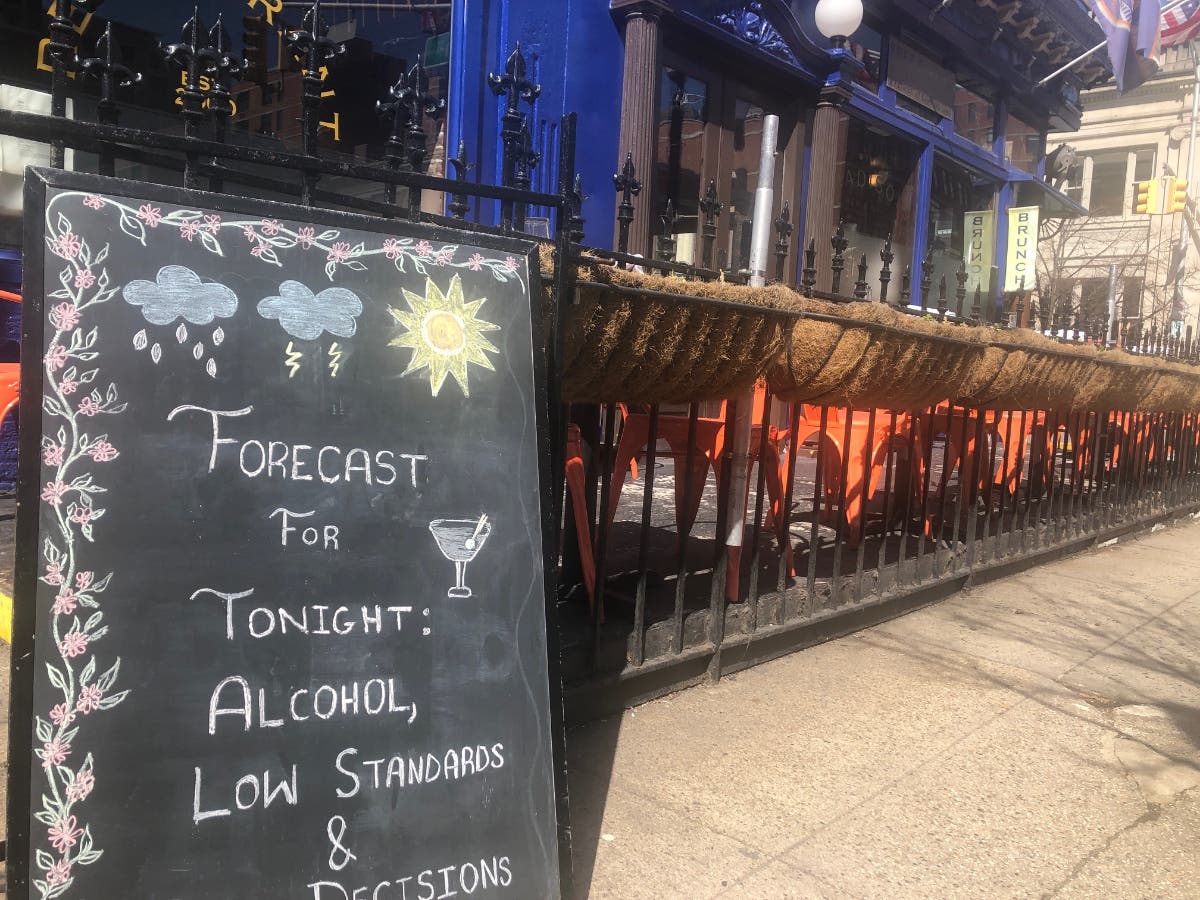 EST
FORECAST
FOR
TONIGHT:
ALCOHOL,
LOW STANDARDS
&
DECISIONS
BRUNCH
BRUNCH